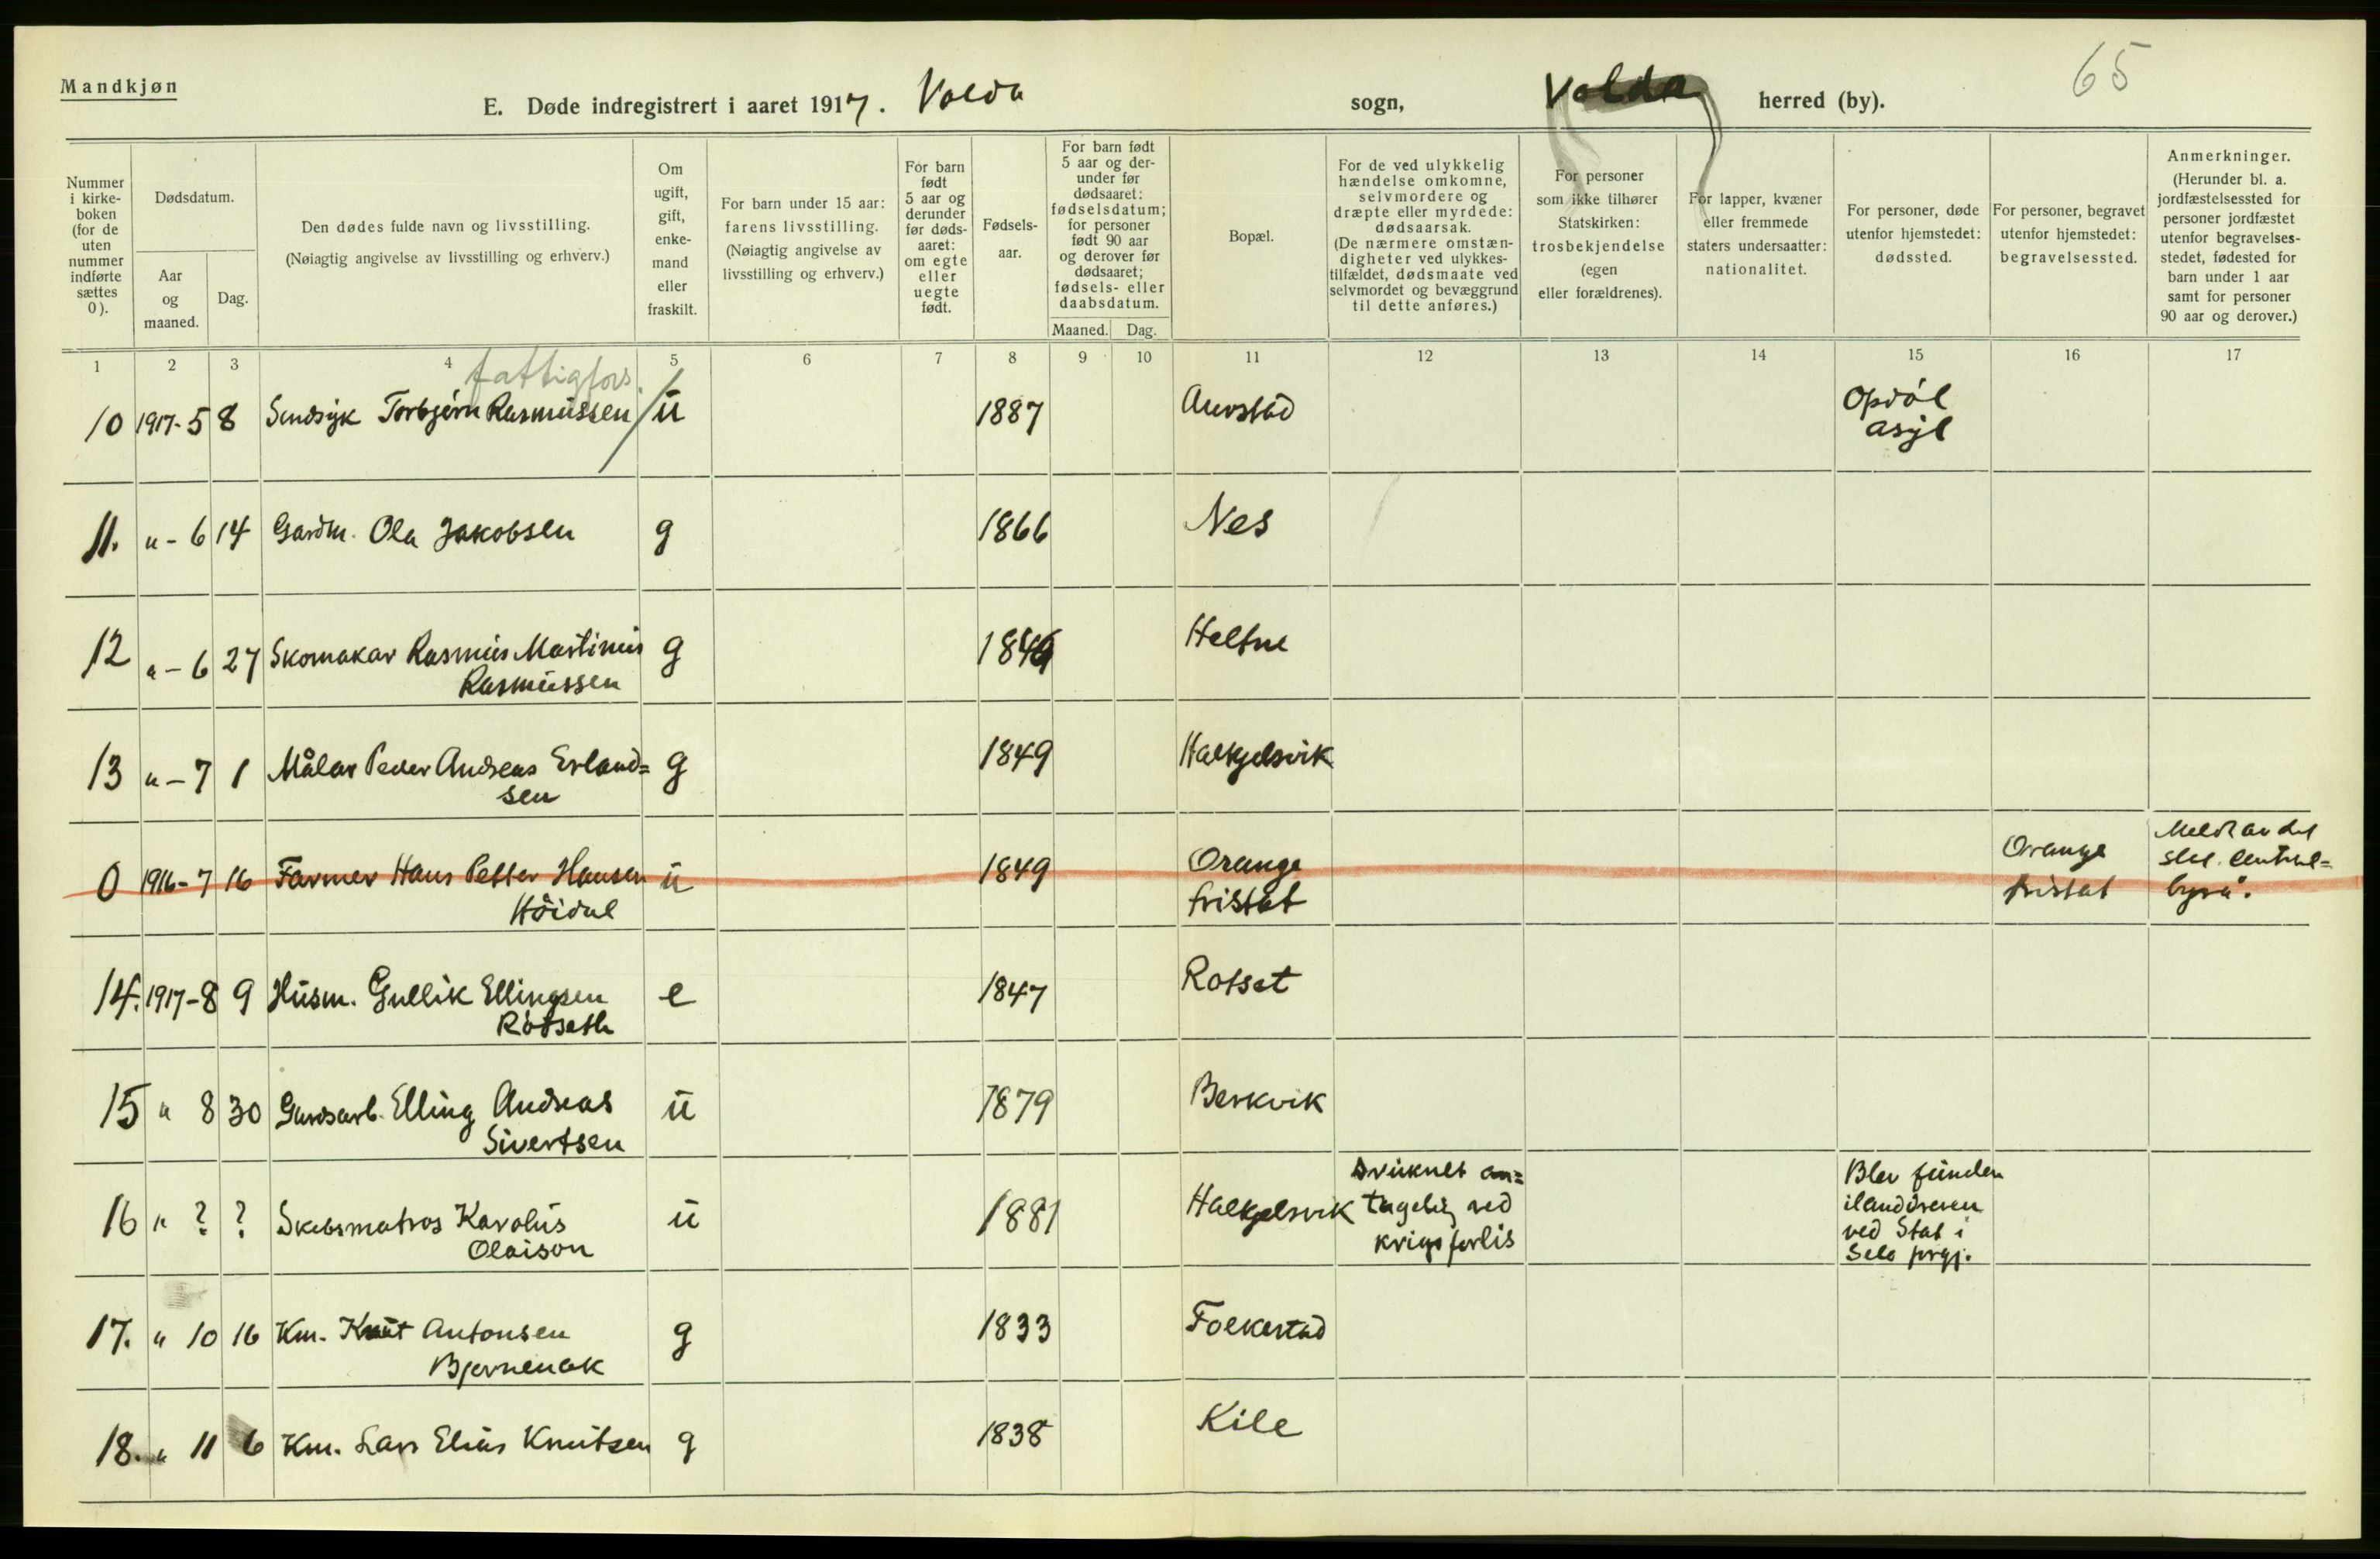 Mandkjøn
65
E. Døde indregistrert i aaret 1917. Volda sogn, Volda herred (by).
Nummer
i kirke-
boken
(for de
uten
nummer
indførte
sættes
0).
Dødsdatum.
Aar
og
maaned.
Dag.
Den dødes fulde navn og livsstilling.
(Nøiagtig angivelse av livsstilling og erhverv.)
Om
ugift,
gift,
enke-
mand
eller
fraskilt.
For barn under 15 aar:
farens livsstilling.
(Nøiagtig angivelse av
livsstilling og erhverv.)
For barn
født
5 aar og
derunder
før døds-
aaret:
om egte
eller
uegte
født.
Fødsels-
aar.
For barn født
5 aar og der-
under før
dødsaaret:
fødselsdatum;
for personer
født 90 aar
og derover før
dødsaaret;
fødsels- eller
daabsdatum.
Maaned. Dag.
Bopæl.
For de ved ulykkelig
hændelse omkomne,
selvmordere og
dræpte eller myrdede:
dødsaarsak.
(De nærmere omstæn-
digheter ved ulykkes-
tilfældet, dødsmaate ved
selvmordet og bevæggrund
til dette anføres.)
For personer
som ikke tilhører
Statskirken:
trosbekjendelse
(egen
eller forældrenes).
For lapper, kvæner
eller fremmede
staters undersaatter:
nationalitet.
For personer, døde
utenfor hjemstedet:
dødssted.
For personer, begravet
utenfor hjemstedet:
begravelsessted.
Anmerkninger.
(Herunder bl. a.
jordfæstelsessted for
personer jordfæstet
utenfor begravelses-
stedet, fødested for
barn under 1 aar
samt for personer
90 aar og derover.)
1 2 3 4 5 6 7 8 9 10 11 12 13 14 15 16 17
fattigfors.
10 1917-5 8 Sindsyk Torbjørn Rasmussen u 1887 Aurstad Opdøl
asyl
11. " - 6 14 Gardm. Ola Jakobsen g 1866 Nes
12 " - 6 27 Skomakar Rasmus Martinus g 1849 Heltne
Rasmussen
13 " - 7 1 Målar Peder Andreas Erland= g 1849 Halkjelsvik
sen
0 1916-7 16 Farmer Hans Petter Hansen u 1849 Orange Orange
Høidal fristat fristat
Meldt av det
stat. Central=
byrå.
14. 1917-8 9 Husm. Gullik Ellingsen e 1847 Rotset
Rotseth
15 " 8 30 Gardsarb. Elling Andreas u 1879 Berkvik
Sivertsen
16 " ? ? Skibsmatros Karolus u 1881 Halkjelsvik
Olaison
druknet an=
tagelig ved
krigsforlis
Blev funden
ilanddreven
ved Stat i
Selo prgj.
17. " 10 16 Km. Knut Antonsen g 1833 Folkestad
Bjørnenak
18. " 11 6 Km. Lars Elias Knutsen g 1838 Kile